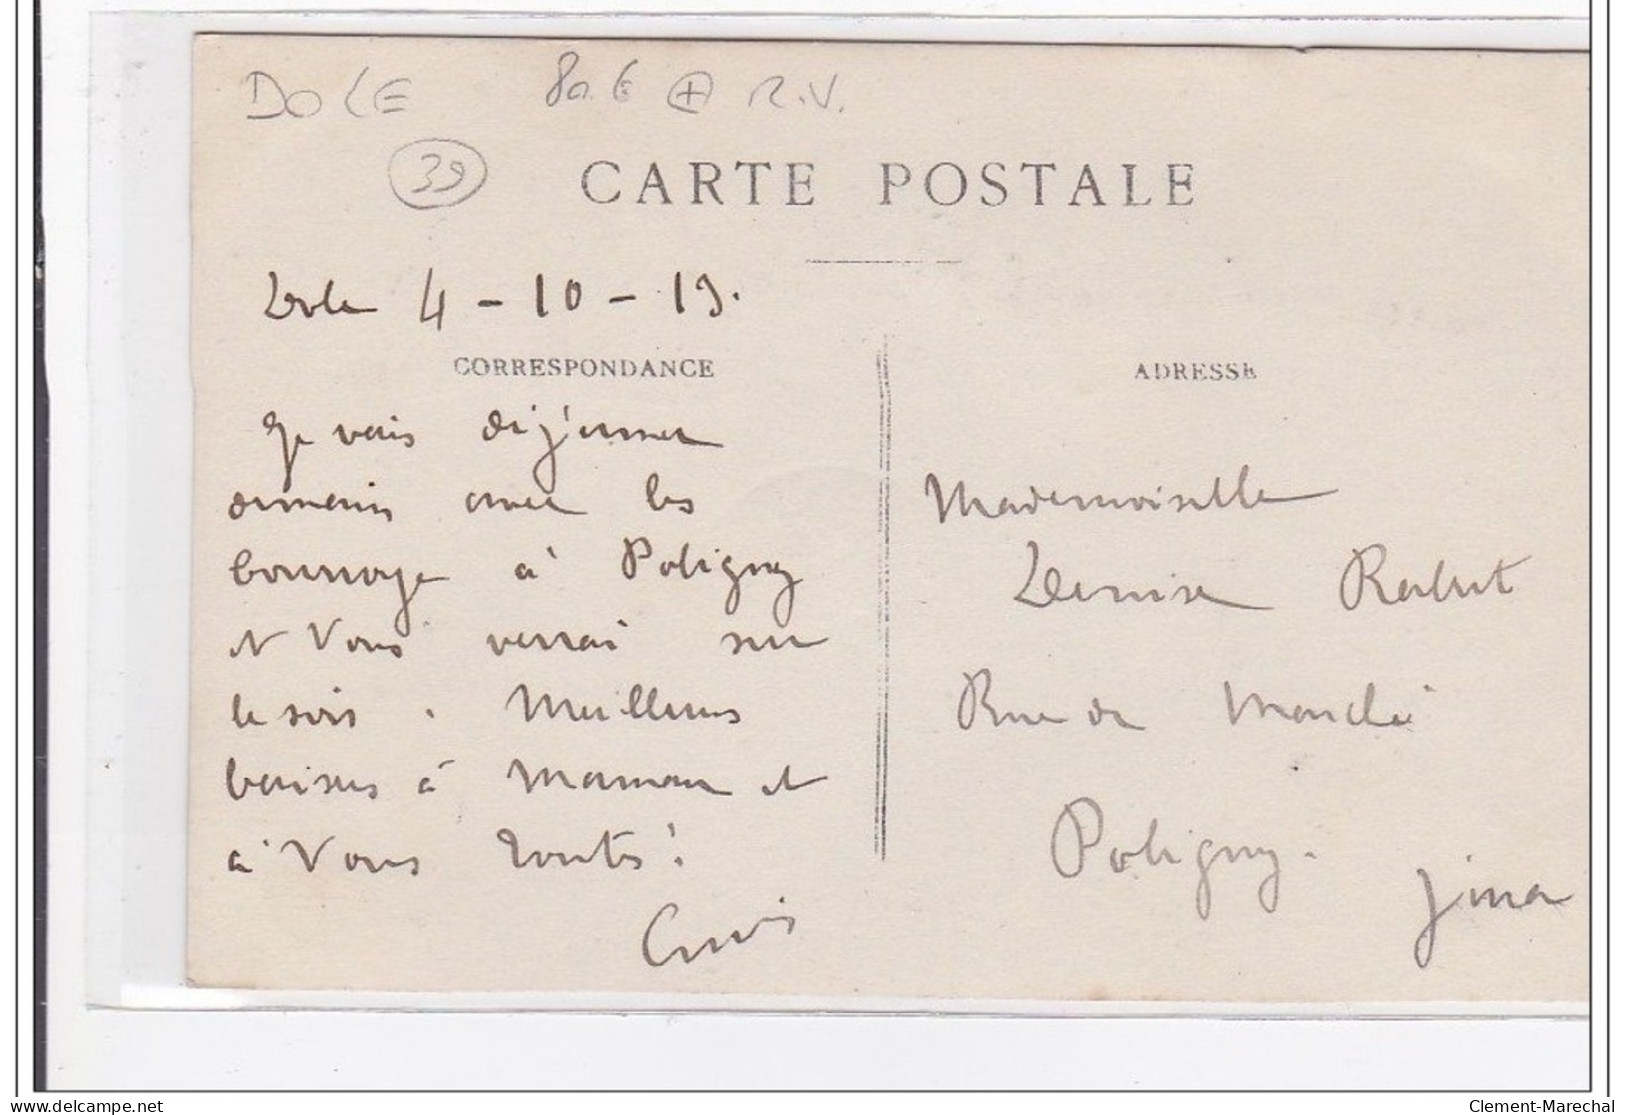 DOLE R.V.
39
CARTE POSTALE
Dole 4-10-19.
CORRESPONDANCE
ADRESSE
Je vais déjeuner
demain avec les
à Poligny
et vous verrai sur
le soir. Meilleurs
baisers à Maman et
à Vous toutes.
Mademoiselle
Denise
Rue du Marché
Poligny.
Jura
delcampe.net
Clement-Marechal